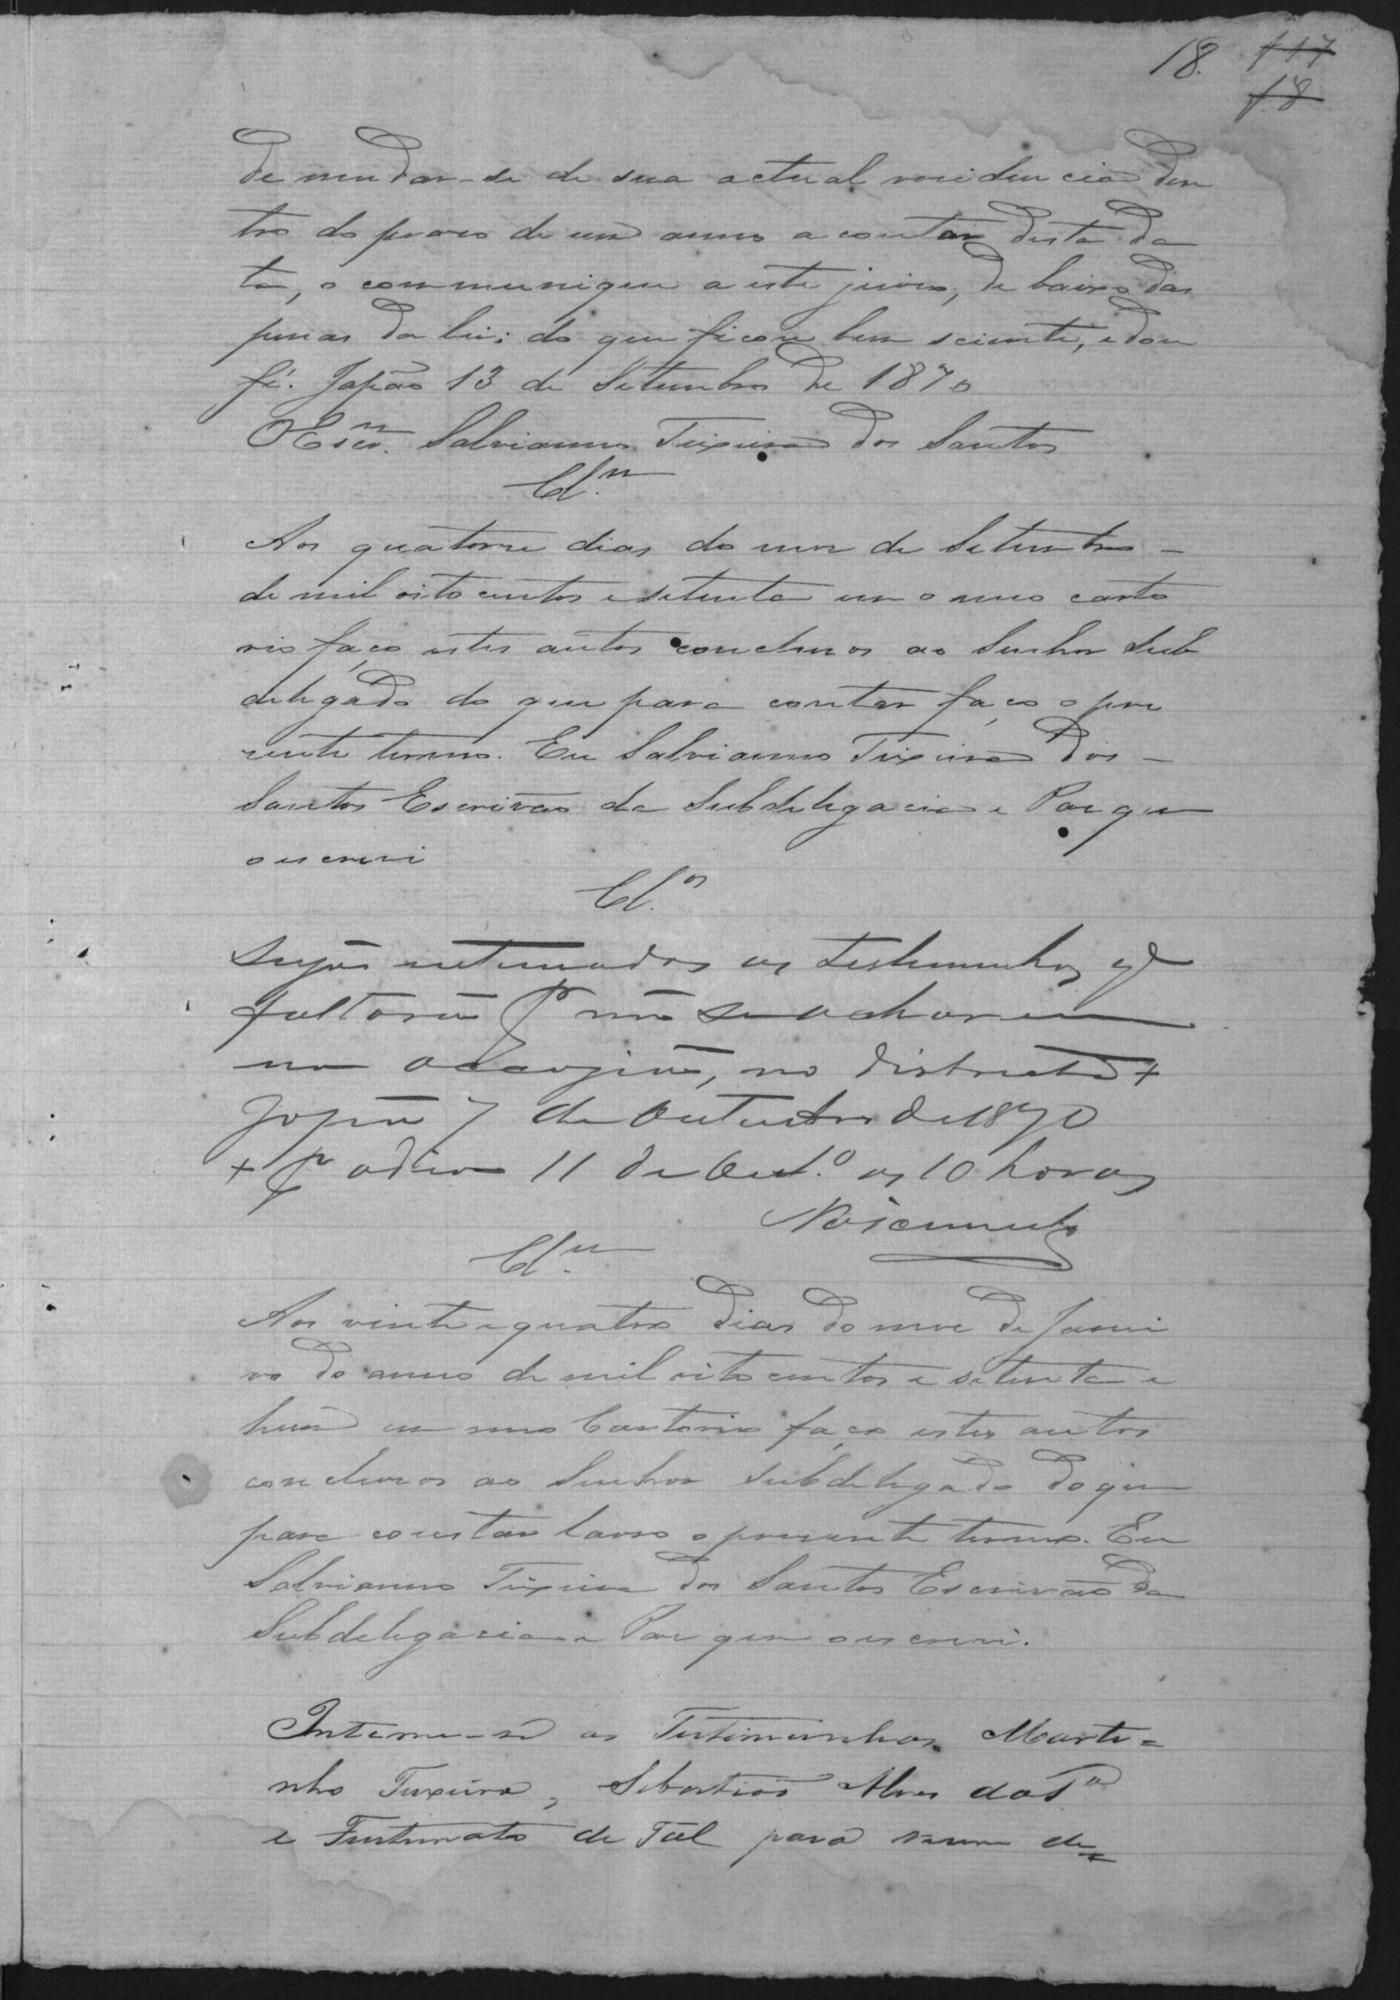 18. f 17
f 8
de mudar-se de sua actual residencia den
tro do praso de um anno a contar desta da
ta, o communique a este juiso, de baixo das
penas da lei; do que ficou bem sciente, e dou
fé. Japão 13 de Setembro de 1870
O Escr.m Salvianno Teixeira dos Santos
Cl.m
Aos quatorse dias do mes de Setembro –
de mil oito centos e setenta em o meo carto
rio faço estes autos conclusos ao Senhor Sub
delegado do que para contar faço o pre
sente termo. Eu Salvianno Teixeira dos –
Santos Escrivão da Subdelegacia e Paz que
o escrevi
Cl.os
Sejão intimados as testemunhas q
faltarão p.r não se acharem
na occasião, no districto +
Japão 7 de Outubro de 1870
+ p.a o dia 11 de Out.o as 10 horas
Nascimento
Cl.m
Aos vinte e quatro dias do mez de Janei
ro do anno de mil oito centos e setenta e
hum em meo Cartorio faço estes autos
conclusos ao Senhor Subdelegado do que
para constar lavro o presente termo. Eu
Salvianno Teixeira dos Santos Escrivão da
Subdelegacia e Paz que o escrevi.
Intime-se as Testimunhas Marti=
nho Teixeira, Sebastião Alves da S.a
e Furtunato de Tal para virem de=